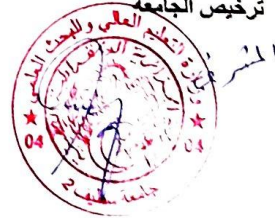 ترخيص الجامعة
المشرف
وزارة التعليم العالي والبحث العلمي
04
04
جامعة سطيف 2